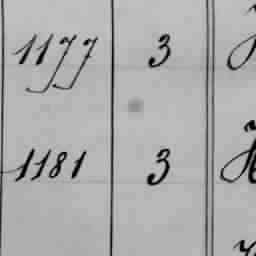 1177 3
1181 3